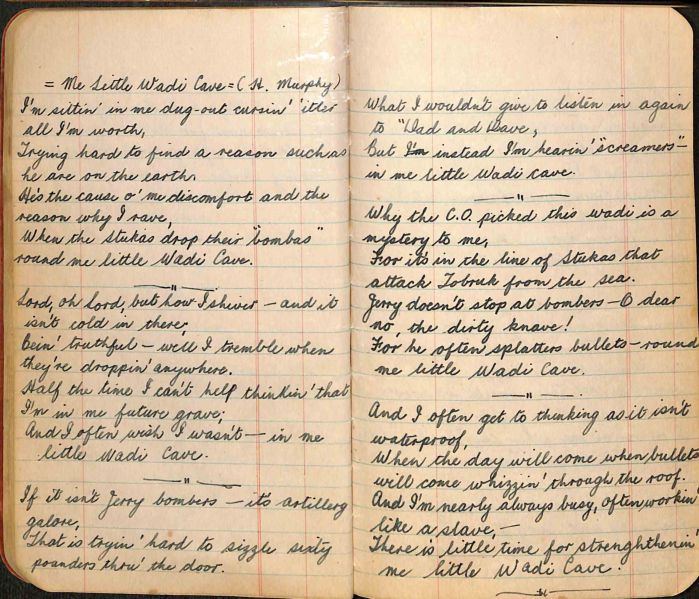 = Me Little Wadi Cave = (H. Murphy)
I'm sittin' in me dug-out cursin' 'itler
all I'm worth,
Trying hard to find a reason such as
he are on the earth.
He's the cause o' me discomfort and the
reason why I rave,
When the stukas drop their "bombas"
round me little Wadi Cave.
"
Lord, oh Lord, but how I shiver – and it
isn't cold in there,
Bein' truthful – well I tremble when
they're droppin' anywhere.
Half the time I can't help thinkin' that
I'm in me future grave;
And I often wish I wasn't – in me
little Wadi Cave.
"
If it isn't Jerry bombers – it's artillery
galore,
That is tryin' hard to sizzle sixty
pounders thru' the door.
What I wouldn't give to listen in again
to "Dad and Dave,
But I'm instead I'm hearin' "screamers" –
in me little Wadi cave.
"
Why the C.O. picked this wadi is a
mystery to me,
For it's in the line of Stukas that
attack Tobruk from the sea.
Jerry doesn't stop at bombers – O dear
no, the dirty knave!
For he often splatters bullets – round
me little Wadi Cave.
"
And I often get to thinking as it isn't
waterproof,
When the day will come when bullets
will come whizzin' through the roof.
And I'm nearly always busy, often workin'
like a slave, –
There is little time for strenghthenin'
me little Wadi Cave.
"